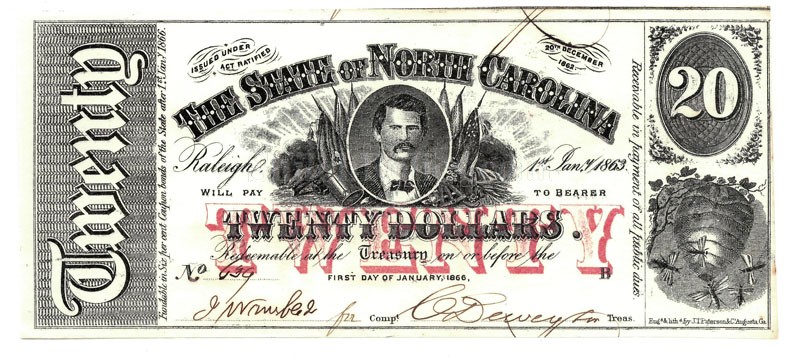 Twenty
Fundable in Six per cent Coupon bonds of the State after 1st Jany 1866.
ISSUED UNDER
ACT RATIFIED
20TH DECEMBER
1862.
THE STATE OF NORTH CAROLINA
Raleigh, 1st Jany 1863.
WILL PAY TO BEARER
TWENTY
TWENTY DOLLARS.
Redeemable at the Treasury on or before the
No B
FIRST DAY OF JANUARY, 1866,
for Compt C Dewey for Treas.
Receivable in payment of all public dues.
20
Engd & lithd by J.T. Paterson & C. Augusta Ga.